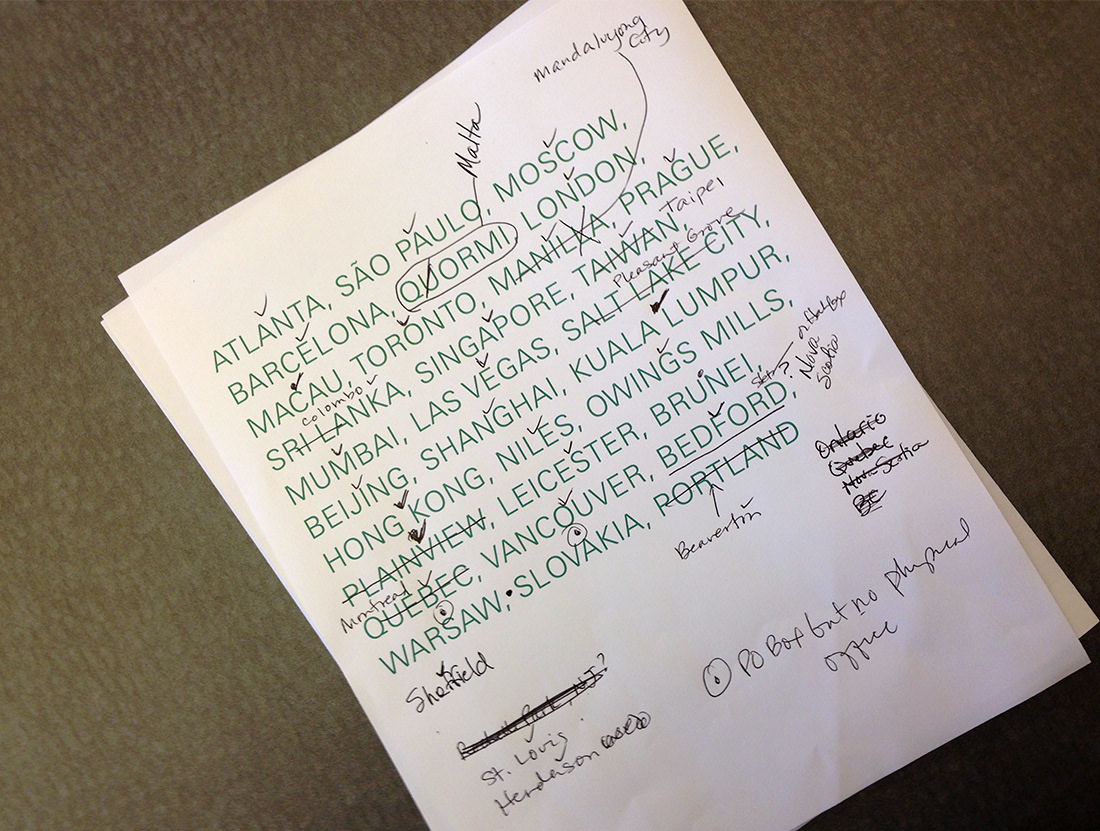 Mandaluyong
City
Malta
ATLANTA, SÃO PAULO, MOSCOW,
BARCELONA, QUORMI, LONDON,
MACAU, TORONTO, MANILLA, PRAGUE,
Colombo
Taipei
SRI LANKA, SINGAPORE, TAIWAN,
Pleasant Grove
MUMBAI, LAS VEGAS, SALT LAKE CITY,
BEIJING, SHANGHAI, KUALA LUMPUR,
HONG KONG, NILES, OWINGS MILLS,
PLAINVIEW, LEICESTER, BRUNEI,
or Halifax
Nova
Scotia
Montreal
QUEBEC, VANCOUVER, BEDFORD,
WARSAW, SLOVAKIA, PORTLAND
Ontario
Quebec
Nova Scotia
BC
Beaverton
Sheffield
St. Louis
Henderson
PO Box but no physical
office